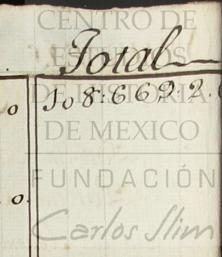 CENTRO DE
ESTUDIOS
DE HISTORIA
DE MEXICO
FUNDACIÓN
Carlos Slim
Total
108:669:2.
0
0.